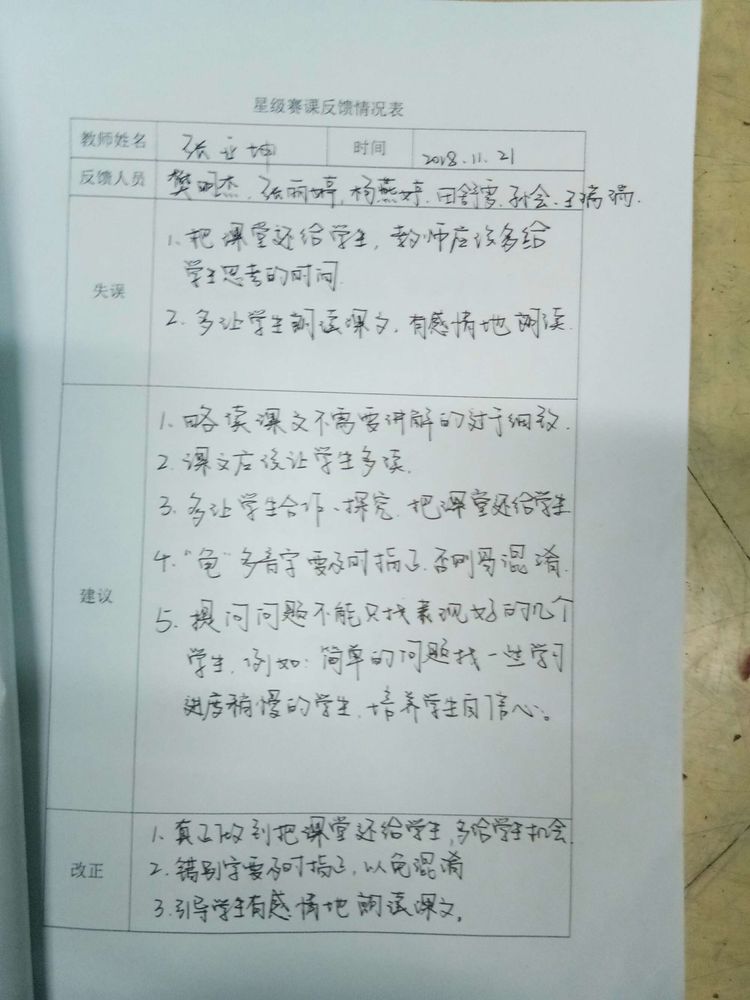 星级赛课反馈情况表
教师姓名 张亚坤 时间 2018.11.21
反馈人员 樊明杰、张丽婷、杨燕婷、田舒雯、孙会、王瑞瑞.
失误
1. 把课堂还给学生,教师应该多给
学生思考的时间.
2. 多让学生朗读课文,有感情地朗读.
建议
1. 略读课文不需要讲解的过于细致.
2. 课文应该让学生多读.
3. 多让学生合作、探究,把课堂还给学生
4. “龟”多音字要及时指正,否则易混淆.
5. 提问问题不能只找表现好的几个
学生,例如:简单的问题找一些学习
进度稍慢的学生,培养学生自信心。
改正
1. 真正做到把课堂还给学生,多给学生机会.
2. 错别字要及时指正,以免混淆
3. 引导学生有感情地朗读课文。